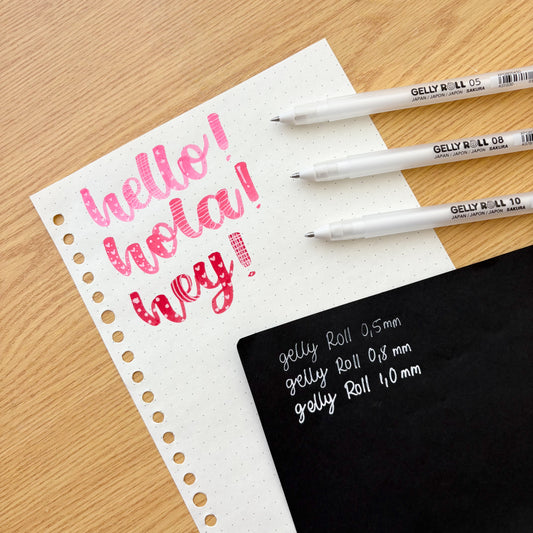 hello!
hola!
hey!
GELLY ROLL 05
JAPAN / JAPON / JAPON SAKURA
GELLY ROLL 08
JAPAN / JAPON / JAPON SAKURA
GELLY ROLL 10
JAPAN / JAPON / JAPON SAKURA
gelly Roll 0,5mm
gelly Roll 0,8mm
gelly Roll 1,0mm